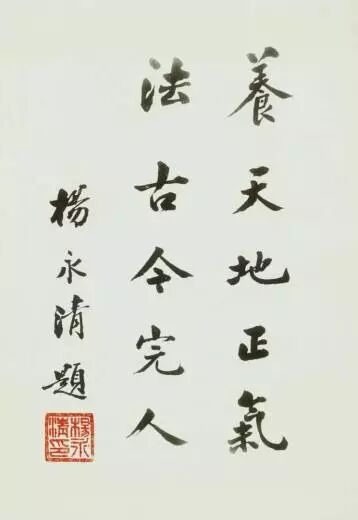 養天地正氣
法古今完人
楊永清題
楊永清印